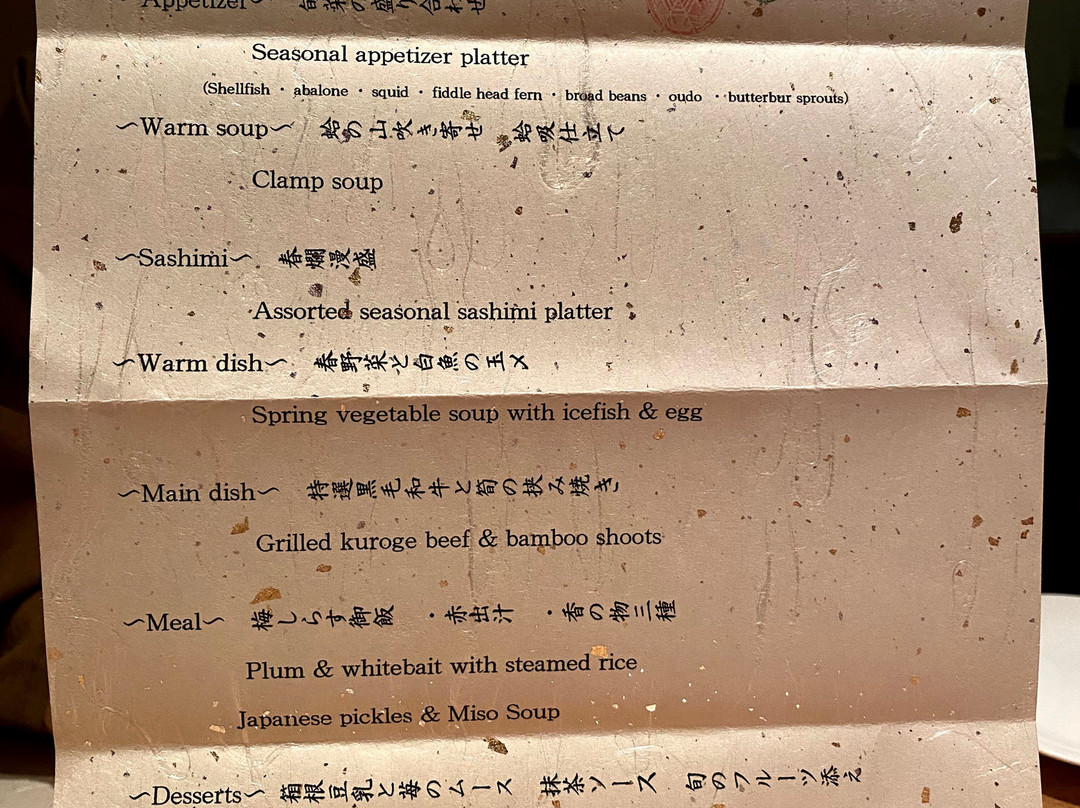 ~Appetizer~ 旬菜の盛り合わせ
Seasonal appetizer platter
(Shellfish ・ abalone ・ squid ・ fiddle head fern ・ broad beans ・ oudo ・ butterbur sprouts)
~Warm soup~ 蛤の山吹き寄せ 蛤吸仕立て
Clamp soup
~Sashimi~ 春爛漫盛
Assorted seasonal sashimi platter
~Warm dish~ 春野菜と白魚の玉〆
Spring vegetable soup with icefish & egg
~Main dish~ 特選黒毛和牛と筍の挟み焼き
Grilled kuroge beef & bamboo shoots
~Meal~ 梅しらす御飯 ・赤出汁 ・香の物三種
Plum & whitebait with steamed rice
Japanese pickles & Miso Soup
~Desserts~ 箱根豆乳と苺のムース 抹茶ソース 旬のフルーツ添え